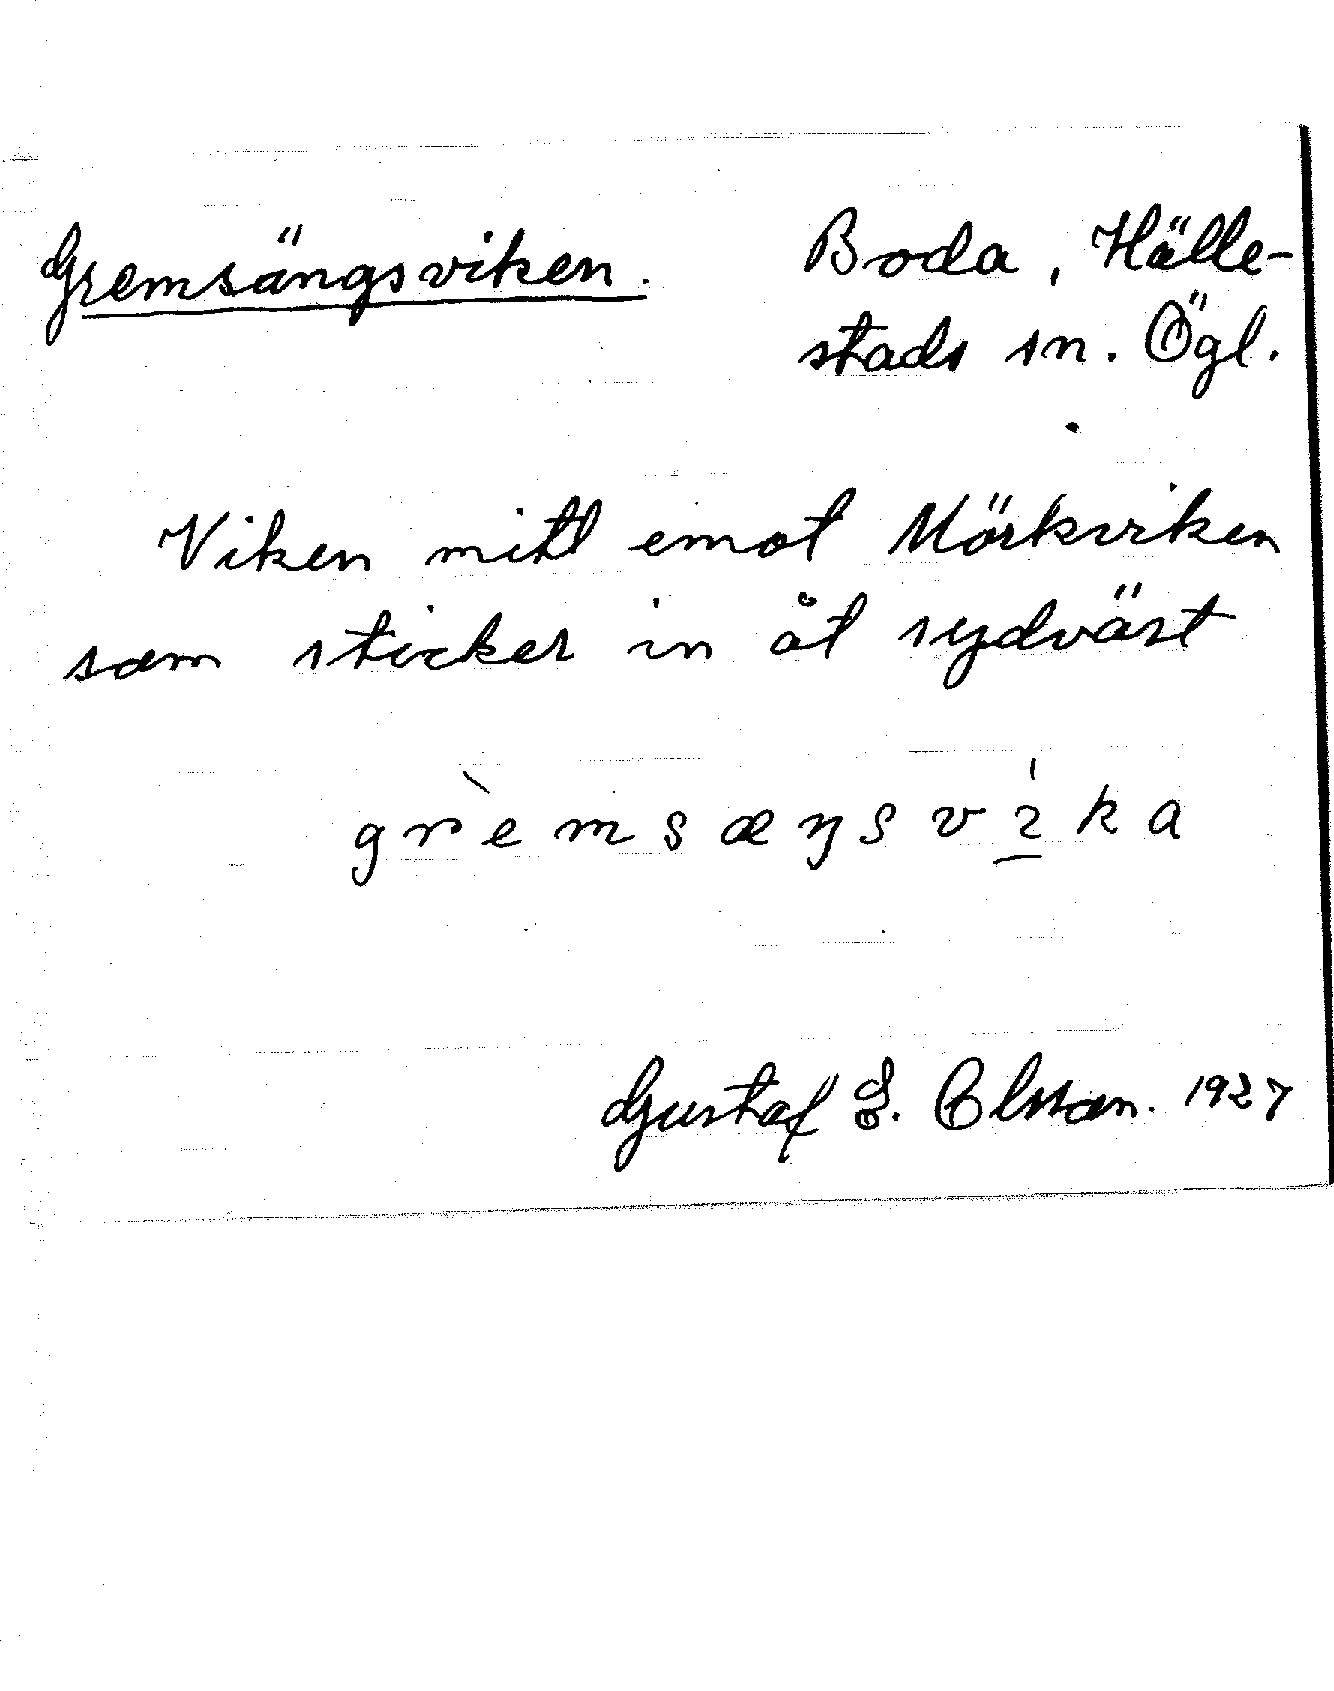 Gremsängsviken. Boda, Hälle-
stads sn. Ögl.
Viken mitt emot Mörkviken
som sticker in åt sydväst
grèmsæŋsvíka
Gustaf E. Olsson. 1927